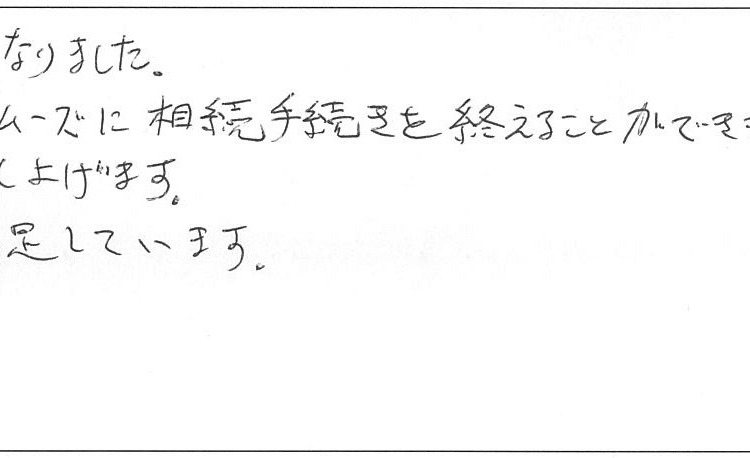 なりました。
ムーズに相続手続きを終えることができ
し上げます。
足しています。